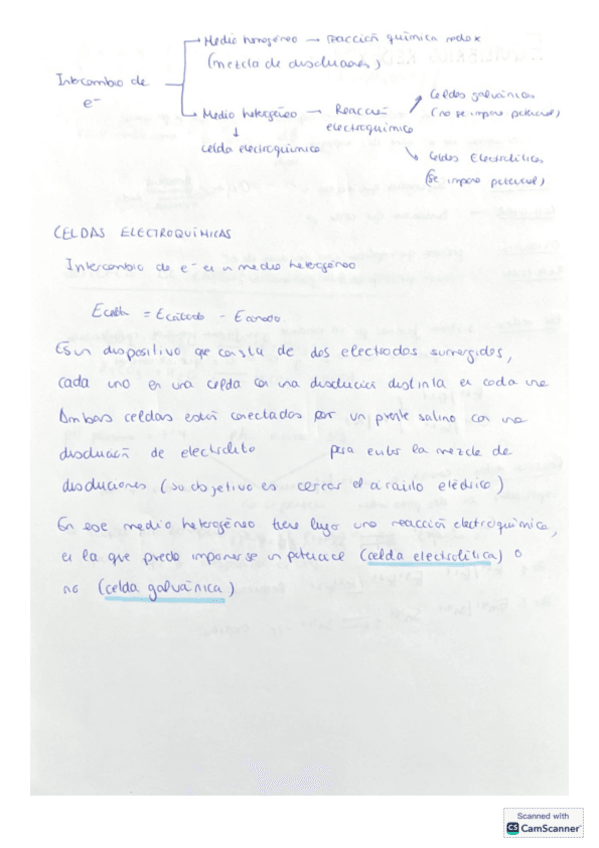 Intercambio de
e-
Medio homogéneo → Reacción química redox
(mezcla de disoluciones)
Medio heterogéneo → Reacción
electroquímica
↓
celda electroquímica
Celdas galvánicas
(no se impone potencial)
Celdas Electrolíticas
(se impone potencial)
CELDAS ELECTROQUÍMICAS
Intercambio de e- en medio heterogéneo
Ecelda = Ecátodo - Eánodo
Es un dispositivo que consta de dos electrodos sumergidos,
cada uno en una celda con una disolución distinta en cada una
Ambas celdas están conectadas por un puente salino con una
disolución de electrolito para evitar la mezcla de
disoluciones (su objetivo es cerrar el circuito eléctrico)
En ese medio heterogéneo tiene lugar una reacción electroquímica,
en la que puede imponerse un potencial (celda electrolítica) o
no (celda galvánica)
Scanned with
CS CamScanner